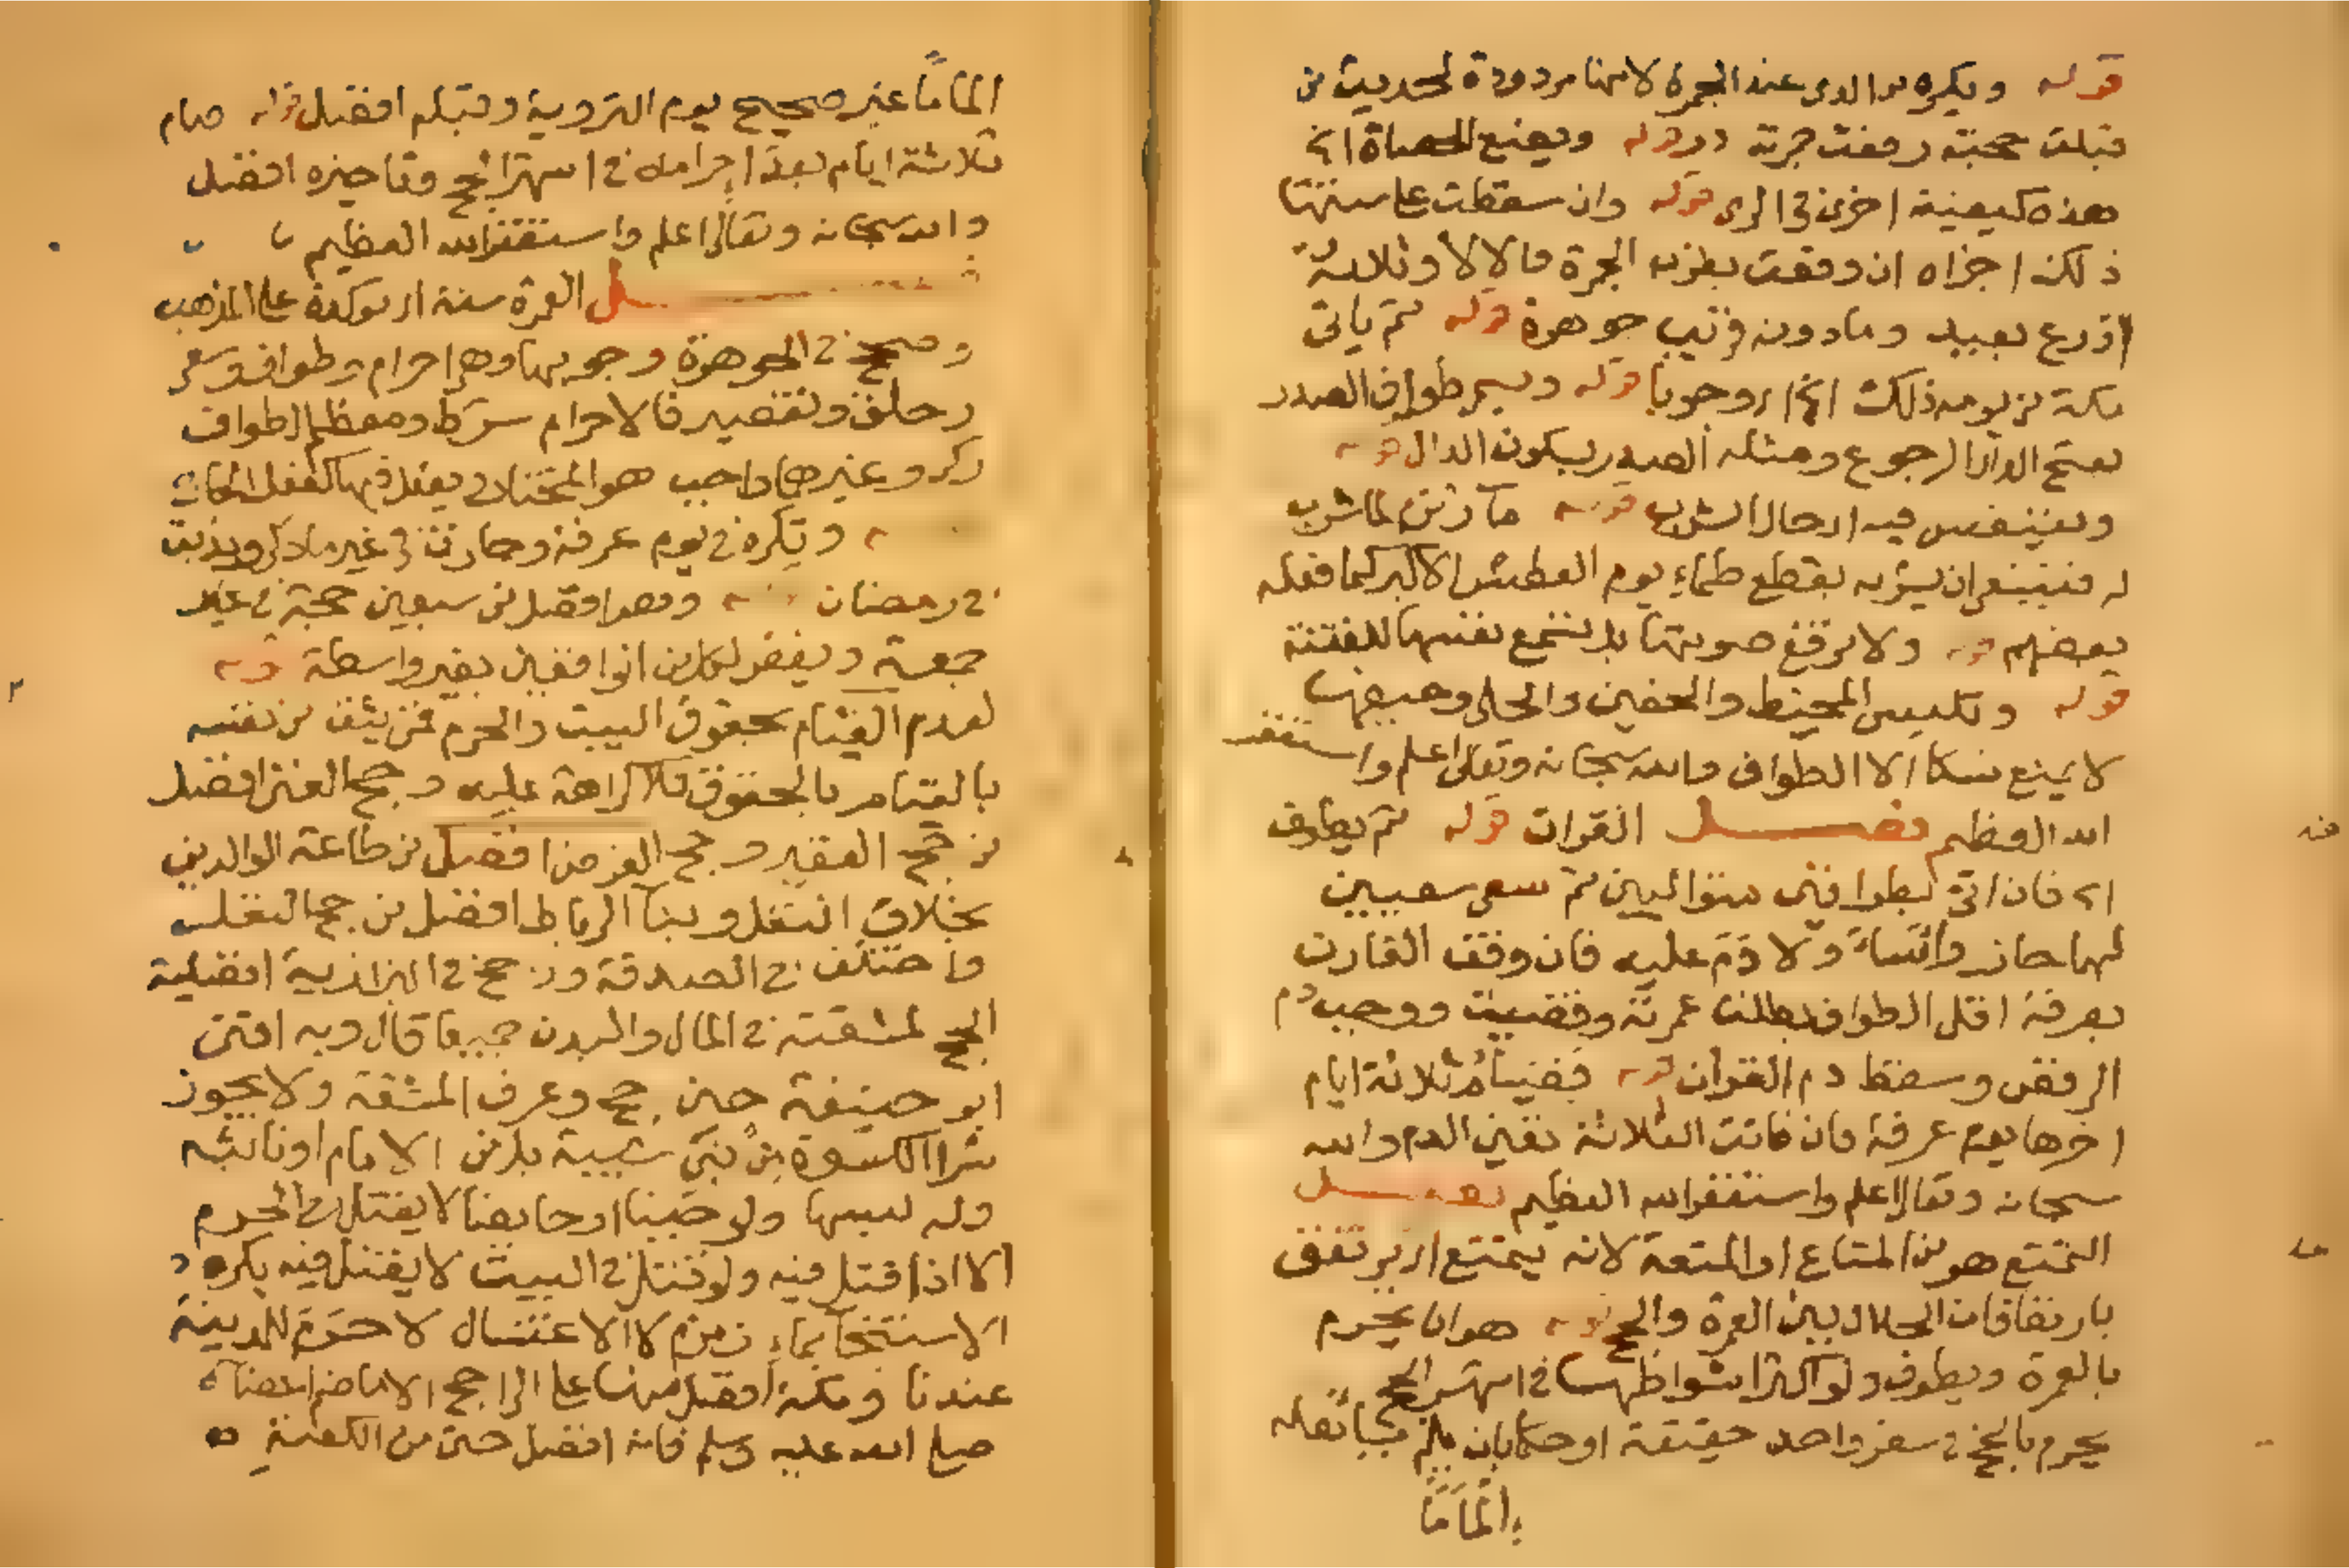 قوله ويكره من الذى عند الجمرة لانها مردودة لحديث من
قبلت حجته رفعت جمرته درر قوله ويضع الحصاة الخ
هذه كيفية اخرى فى الرمى قوله وان سقطت على سننها
ذلك اجزاه ان وقعت بقرب الجمرة والا لا وثلاثة
اذرع بعيد وما دونه قريب جوهرة قوله ثم ياتى
مكة من يومه ذلك الخ اى وجوبا قوله ويسمى طواف الصدر
بفتح الدال الرجوع ومثله الصدر بسكون الدال قوله
ويتنفس فيه اى حال الشرب قوله ماء زمزم لما شرب
له فينبغى ان يشربه بقطع ظماء يوم العطش الاكبر كما فعله
بعضهم قوله ولا ترفع صوتها بل تسمع نفسها للفتنة
قوله وتلبس المخيط والخفين والحلى وحيضها
لا يمنع نسكا الا الطواف والله سبحانه وتعالى اعلم واستغفر
الله العظيم فصل القران قوله ثم يطوف
اى فان اتى بطوافين متواليين ثم سعى سعيين
لهما جاز واساء ولا دم عليه فان وقف القارن
بعرفة اقل الطواف بطلت عمرته وقضيت ووجب دم
الرفض وسقط دم القران قوله فصيام ثلاثة ايام
اخرها يوم عرفة فان فاتت الثلاثة تعين الدم والله
سبحانه وتعالى اعلم واستغفر الله العظيم فصل
التمتع هو من المتاع او المتعة لانه يتمتع اى يرتفق
بارتفاقات الحلال بين العمرة والحج قوله هو ان يحرم
بالعمرة ويطوف ولو اكثر اشواطها فى اشهر الحج
يحرم بالحج فى سفر واحد حقيقة او حكما بان يلم باهله
الماما
الماما غير صحيح يوم التروية وقبله افضل قوله صام
ثلاثة ايام بعد احرامه فى اشهر الحج وتاخيره افضل
والله سبحانه وتعالى اعلم واستغفر الله العظيم
فصل العمرة سنة اى موكدة على المذهب
وصحح فى الجوهرة وجوبها وهى احرام وطواف وسعى
وحلق وتقصير فالاحرام شرط ومعظم الطواف
ركن وغيرهما واجب هو المختار يفعل فيها كفعل الحاج
وتكره فى يوم عرفة وجازت فى غير ما ذكر وندبت
فى رمضان وهو افضل من سبعين حجة فى غير
جمعة ويغفر لكل من الواقفين بغير واسطة قوله
لعدم القيام بحقوق البيت والحرم فمن يثق من نفسه
بالقيام بالحقوق فلا كراهة عليه وحج الغنى افضل
من حج الفقير وحج الفرض افضل من طاعة الوالدين
بخلاف النفل وبناء الرباط افضل من حج النفل
واختلف فى الصدقة ورجح فى البزازية افضلية
الحج لمشقته فى المال والبدن جميعا قال وبه افتى
ابو حنيفة حين حج وعرف المشقة ولا يجوز
شراء الكسوة من بنى شيبة بل من الامام او نائبه
وله لبسها ولو جنبا او حايضا لا يقتل فى الحرم
الا اذا قتل فيه ولو قتل فى البيت لا يقتل فيه يكره
الاستنجاء بماء زمزم لا الاغتسال لا حرم للمدينة
عندنا ومكة افضل منها على الراجح الا ما ضم اعضاءه
صلى الله عليه وسلم فانه افضل حتى من الكعبة